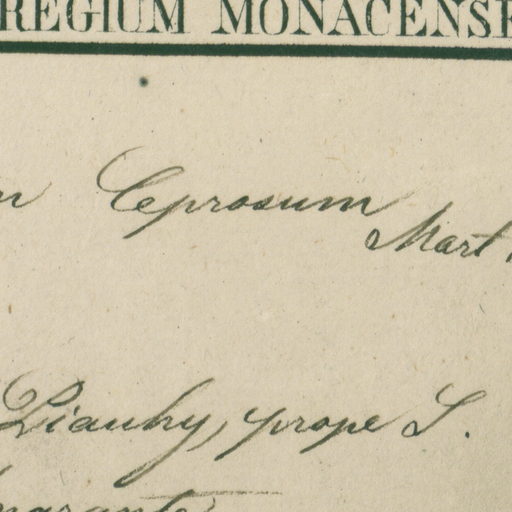 REGIUM MONACENSE
Leprosum
Mart.
Piauhy, prope S.